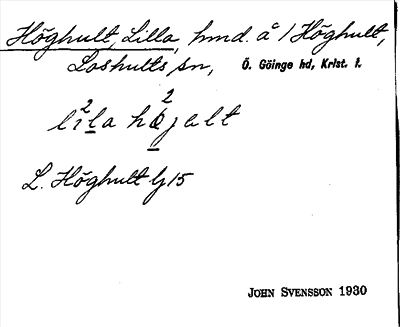 Höghult, Lilla, hmd. å 1 Höghult,
Loshults sn, Ö. Göinge hd, Krist. l.
L. Höghult lj 15
JOHN SVENSSON 1930